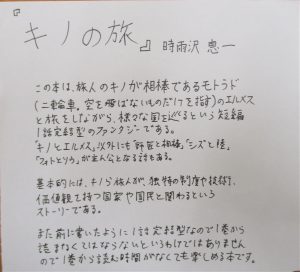 『キノの旅』 時雨沢 恵一
この本は、旅人のキノが相棒であるモトラド
(二輪車。空を飛ばないものだけを指す)のエルメス
と旅をしながら、様々な国を巡るという短編
1話完結型のファンタジーである。
「キノとエルメス」以外にも「師匠と相棒」「シズと陸」
「フォトとソウ」が主人公となる話もある。
基本的には、キノら旅人が、独特の制度や技術、
価値観を持つ国家や国民と関わるという
ストーリーである。
また前に書いたように1話完結型なので1巻から
読まなくてはならないというわけではありません
ので1巻から読む時間がなくても楽しめる本です。